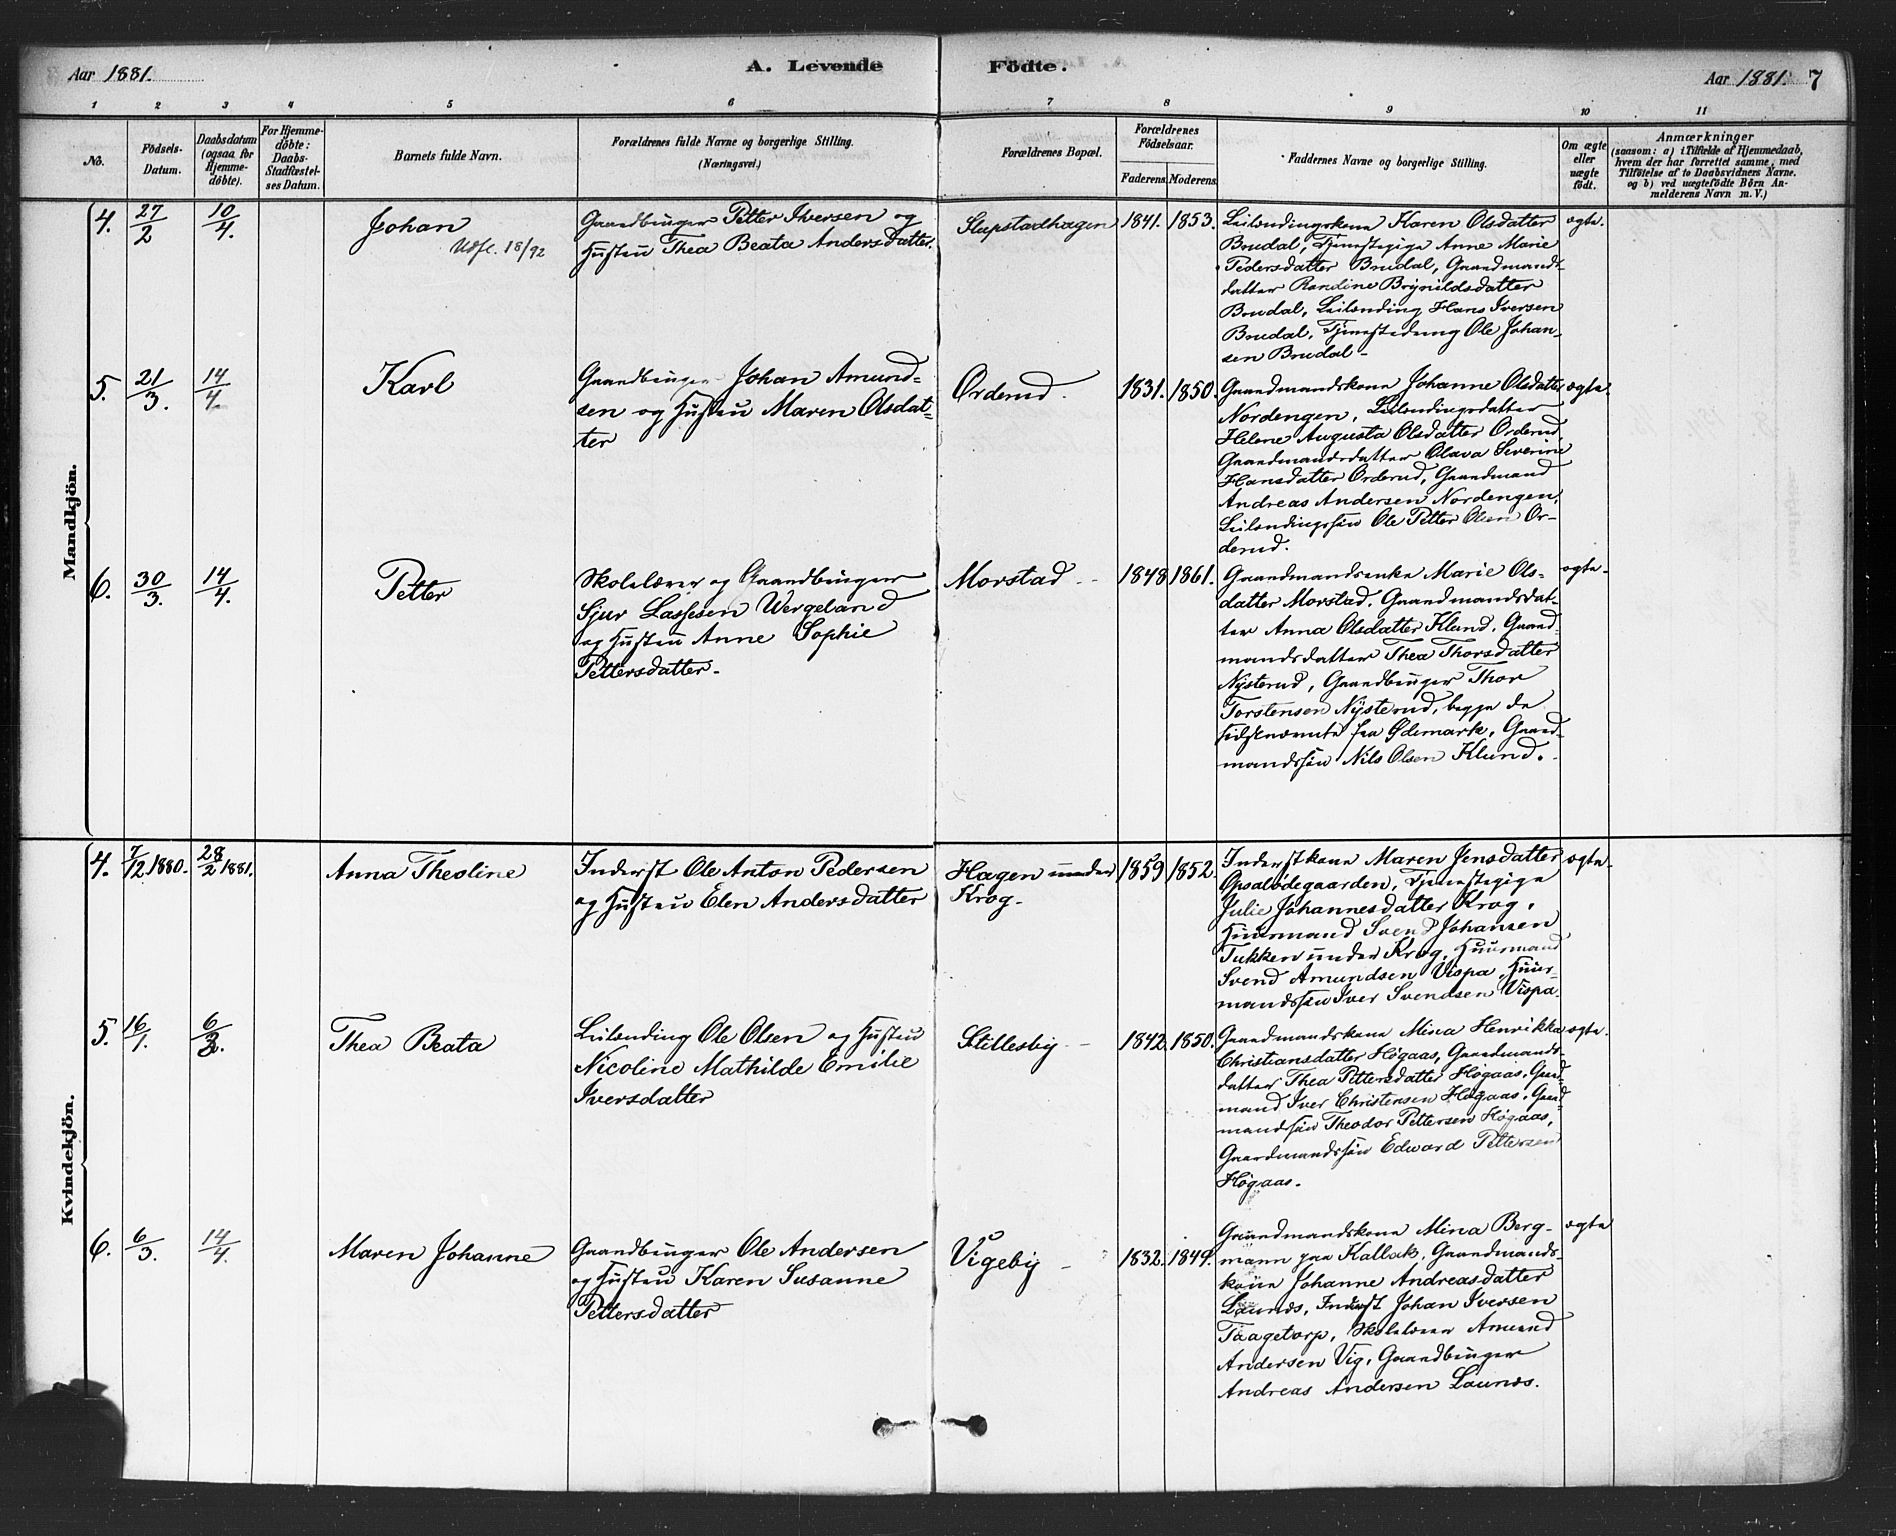 Aar 1881.
A. Levende Födte.
Aar 1881. 7
1 2 3 4 5 6 7 8 9 10 11
No.
Födsels-
Datum.
Daabsdatum
(ogsaa for
Hjemme-
döbte).
For Hjemme-
döbte:
Daabs-
Stadfæstel-
ses Datum.
Barnets fulde Navn.
Forældrenes fulde Navne og borgerlige Stilling.
(Næringsvei.)
Forældrenes Bopæl.
Forældrenes
Födselsaar.
Faderens Moderens
Faddernes Navne og borgerlige Stilling.
Om ægte
eller
uægte
födt.
Anmærkninger
(saasom: a) i Tilfælde af Hjemmedaab,
hvem der har forrettet samme, med
Tilföielse af to Daabsvidners Navne.
og b) ved uægtefödte Börn An-
melderens Navn m. V.)
Mandkjön.
4. 27/2 10/4.
Johan
Udfl. 18/92
Gaardbruger Petter Iversen og
Hustru Thea Beata Andersdatter.
Slupstadhagen 1841. 1853.
Leilændingskone Karen Olsdatter
Brudal, Tjenestepige Anne Marie
Pedersdatter Brudal, Gaardmands-
datter Randine Brynildsdatter
Brudal, Leilænding Hans Iversen
Brudal, Tjenestedreng Ole Johan-
sen Brudal-
ægte.
5. 21/3. 14/4.
Karl
Gaardbruger Johan Amund-
sen og Hustru Maren Olsdat-
ter
Orderud. 1831. 1850.
Gaardmandskone Johanne Olsdatter
Nordengen, Leilændingsdatter
Helene Augusta Olsdatter Orderud,
Gaardmandsdatter Olava Severine
Hansdatter Orderud, Gaardmand
Andreas Andersen Nordengen,
Leilændingssøn Ole Petter Olsen Or-
derud.
ægte.
6. 30/3. 14/4.
Petter
Skolelærer og Gaardbruger
Sjur Lassesen Wergeland
og Hustru Anne Sophie
Pettersdatter-
Morstad - 1848 1861.
Gaardmandsenke Marie Ols-
datter Morstad, Gaardmandsdat-
ter Anna Olsdatter Klund, Gaard-
mandsdatter Thea Thorsdatter
Nysterud, Gaardbruger Thor
Torstensen Nysterud, begge de
sidstnævnte fra Ødemark, Gaard-
mandssøn Nils Olsen Klund.
ægte-
Kvindekjön.
4. 7/12 1880. 28/2 1881.
Anna Theoline
Inderst Ole Anton Pedersen
og Hustru Elen Andersdatter
Hagen under
Krog.
1859 1852.
Inderstkone Maren Jensdatter
Opsalødegaarden, Tjenestepige
Julie Johannesdatter Krog,
Huusmand Svend Johansen
Tukken under Krog, Huusmand
Svend Amundsen Vispa, Huus-
mandssøn Iver Svendsen Vispa.
ægte-
5. 16/1. 6/3.
Thea Beata
Leilænding Ole Olsen og Hustru
Nicoline Mathilde Emilie
Iversdatter
Stillesby - 1842 1850.
Gaardmandskone Mina Henrikka
Christiansdatter Høgaas, Gaardmands-
datter Thea Pettersdatter Høgaas, Gaard-
mand Iver Christensen Høgaas, Gaard-
mandssøn Theodor Pettersen Høgaas,
Gaardmandssøn Edward Pettersen
Høgaas.
ægte-
6. 6/3. 14/4.
Maren Johanne
Gaardbruger Ole Andersen
og Hustru Karen Susanne
Pettersdatter
Vigeby - 1832. 1849.
Gaardmandskone Mina Berg-
mann paa Kallak, Gaardmands-
kone Johanne Andreasdatter
Launes, Inderst Johan Iversen
Taagetorp, Skolelærer Amund
Andersen Vig, Gaardbruger
Andreas Andersen Launes.
ægte